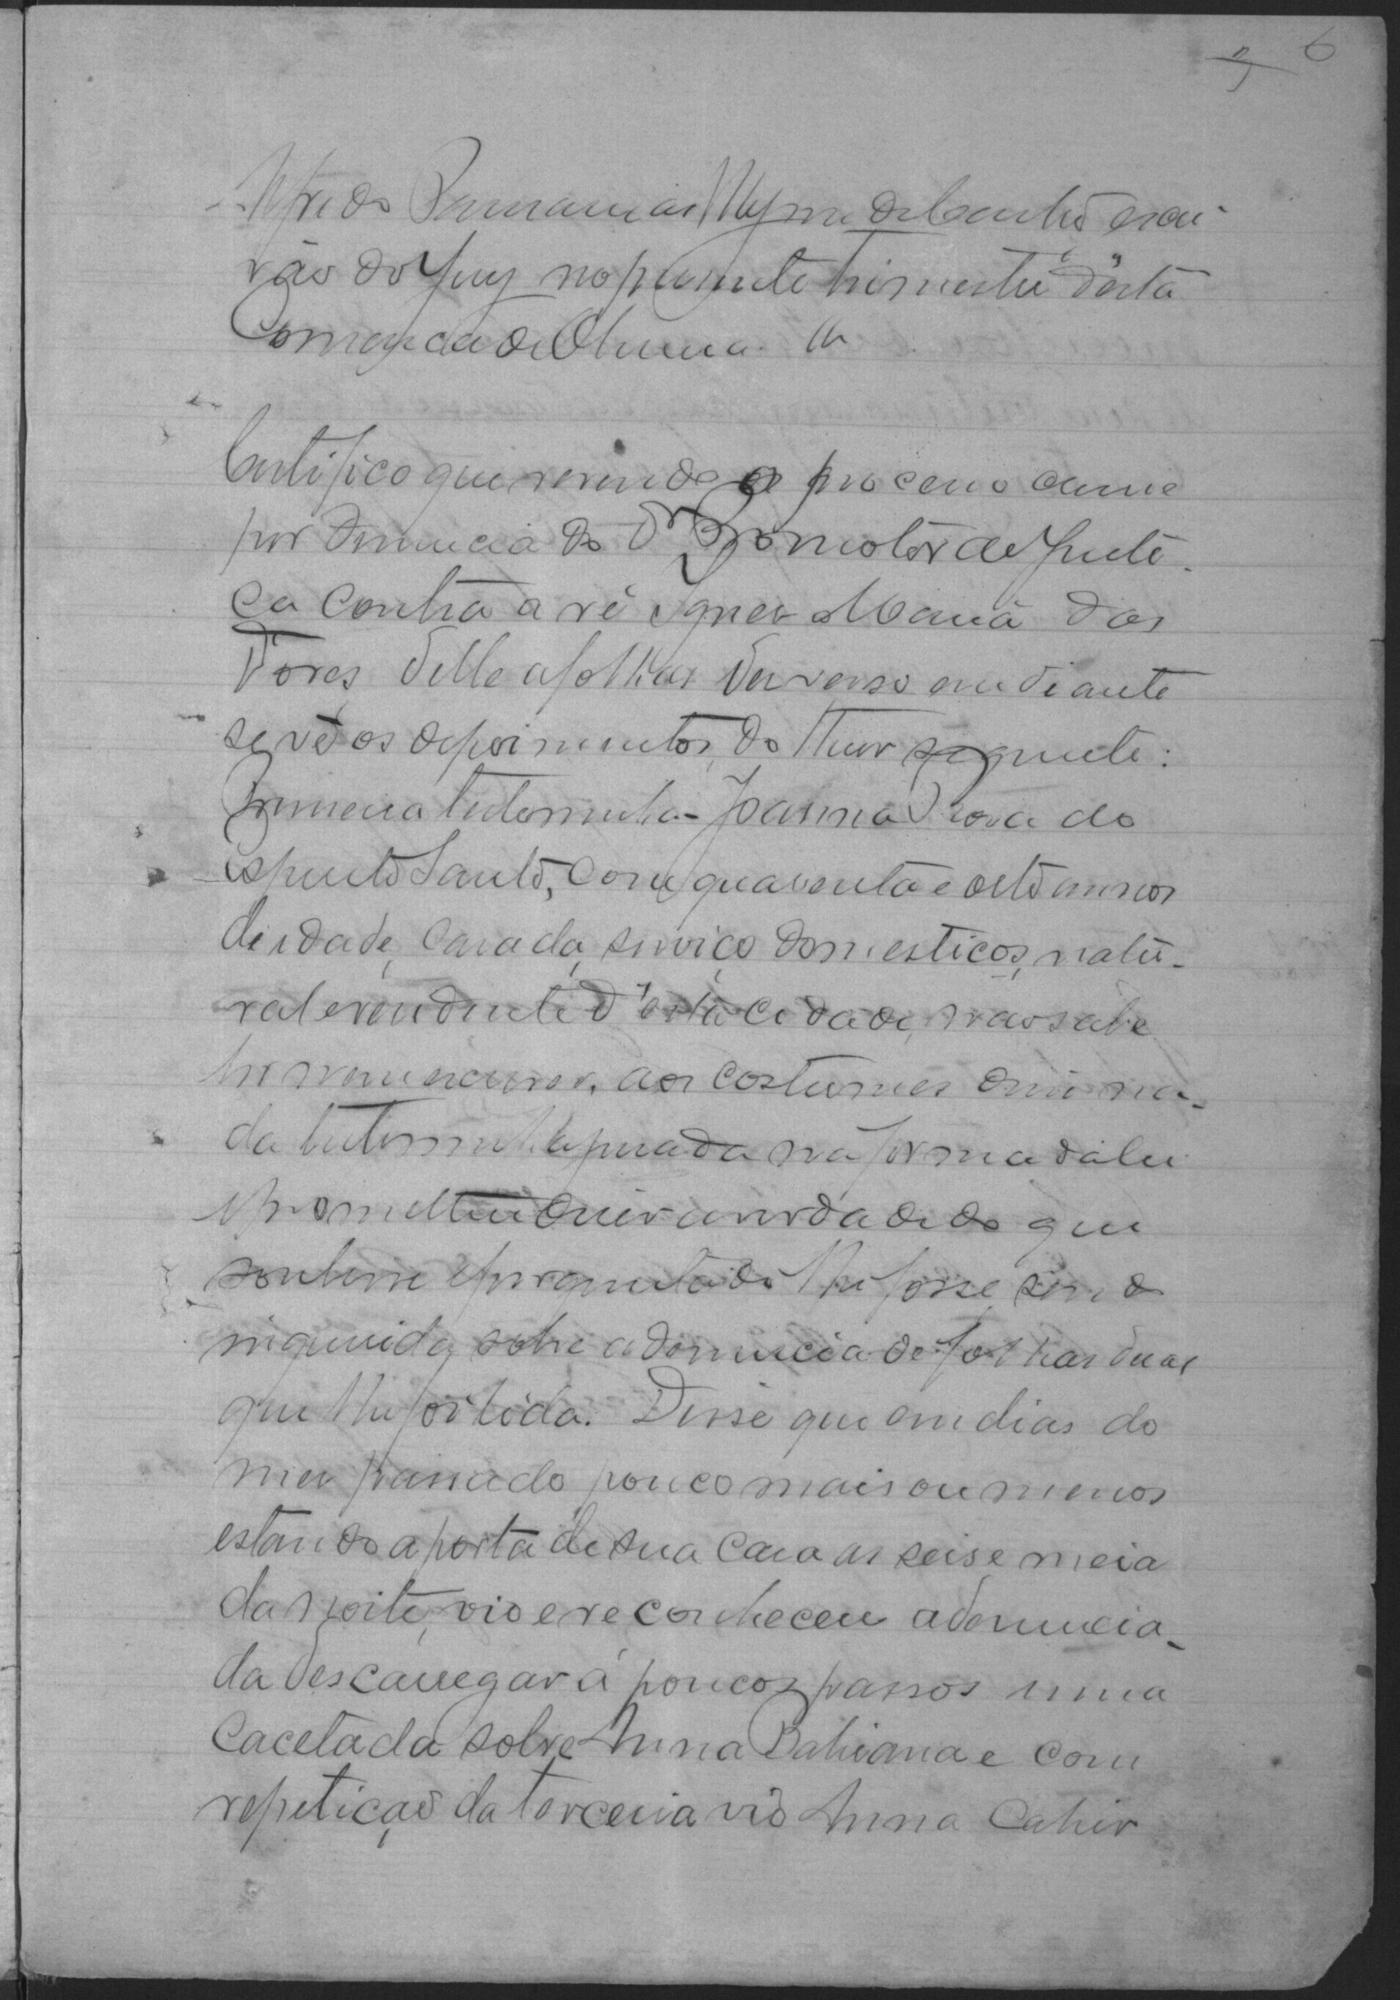 6
Alfredo de escri-
vão do Jury no presente trimestre d'esta
Comarca de
Certifico que revendo o processo crime
por denuncia do Dr Promotor de Justi-
ça contra a ré Ignez Maria das
Dores delle a folhas dez verso em diante
se vê os depoimentos do theor seguinte:
Primeira testemunha Joanna Rosa do
Espirito Santo, com quarenta e oito annos
de idade, casada, serviço domesticos, natu-
ral e residente d'esta cidade, não sabe
ler nem escrever, aos costumes disse na-
da testemunha jurada na forma da lei
e prometteu dizer a verdade do que
soubesse e perguntado lhe fosse, sendo
inquirida sobre a denuncia de folhas duas
que lhe foi lida. Disse que em dias do
mez passado pouco mais ou menos
estando a porta de sua casa as seis e meia
da noite, vio e reconheceu a denuncia-
da descarregar á poucos passos uma
cacetada sobre Anna Bahiana e com
repetição da terceira vio Anna cahir